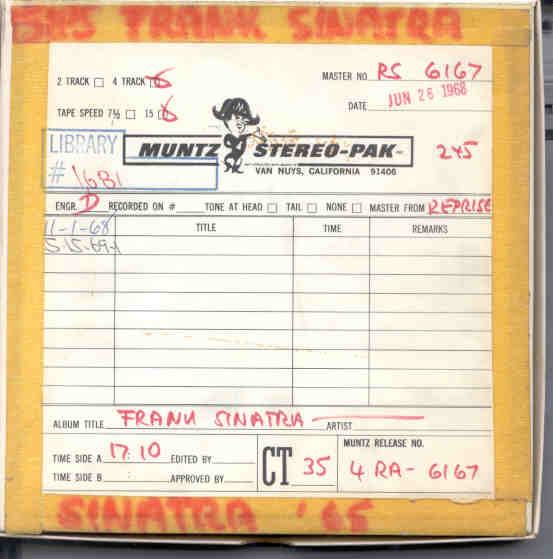 SPS FRANK SINATRA
2 TRACK 4 TRACK
MASTER NO. RS 6167
TAPE SPEED 7½ 15
DATE JUN 26 1968
LIBRARY
# 1681
MUNTZ STEREO-PAK
VAN NUYS, CALIFORNIA 91406
245
ENGR. D RECORDED ON # TONE AT HEAD TAIL NONE MASTER FROM REPRISE
11-1-68 TITLE TIME REMARKS
5-15-69
ALBUM TITLE FRANK SINATRA ARTIST
TIME SIDE A 17:10 EDITED BY
TIME SIDE B : APPROVED BY
CT 35
MUNTZ RELEASE NO.
4 RA- 6167
SINATRA '65